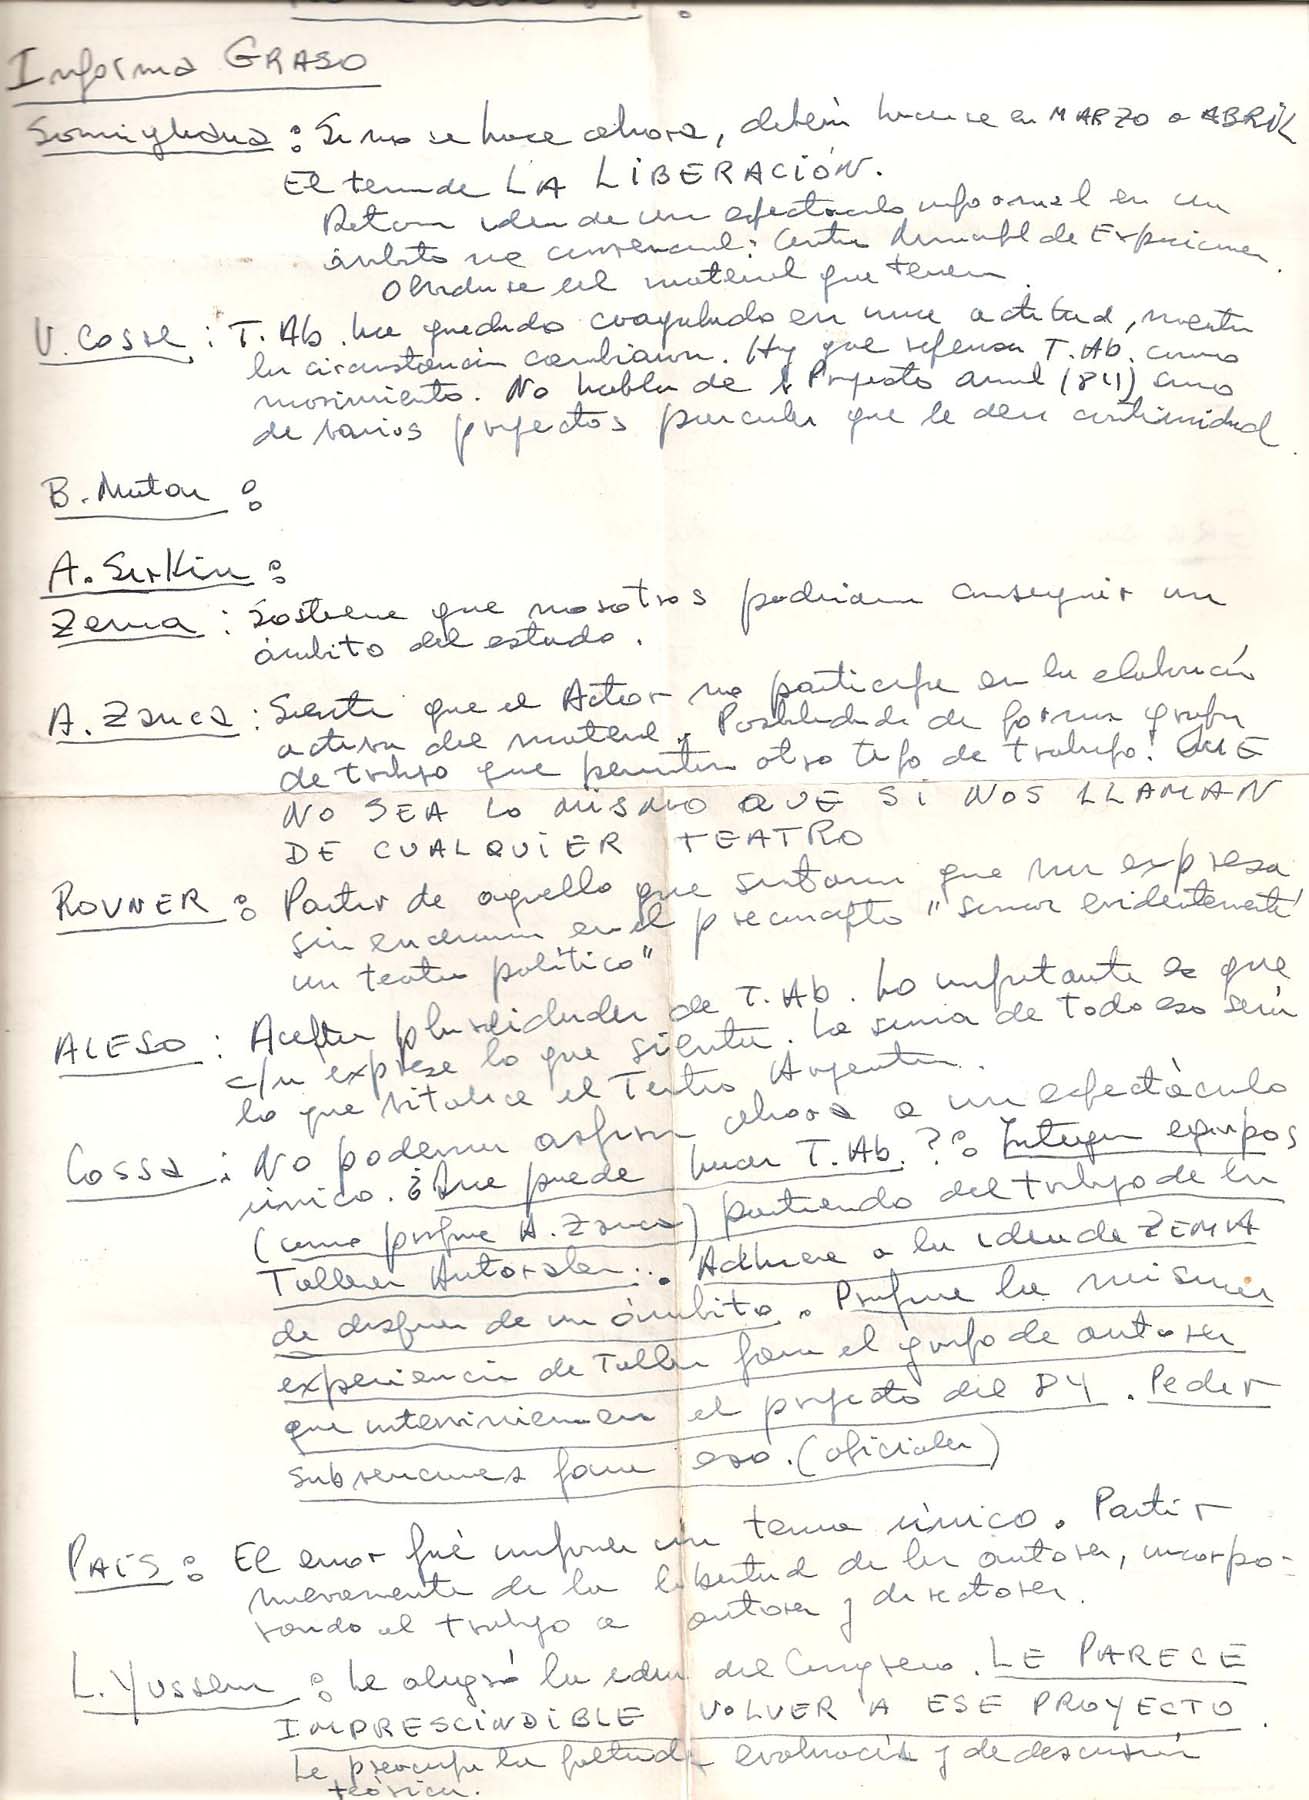 Informa GRASO
Somigliana : Si no se hace ahora, deberá hacerse en MARZO o ABRIL
El tema de LA LIBERACIÓN.
Retoma idea de un espectáculo informal en un
ámbito no convencional: Centro Municipal de Exposiciones.
Olvidarse del material que tienen.
V. Cosse : T. Ab. ha quedado coagulado en una actitud, mientras
las circunstancias cambiaron. Hay que repensar T. Ab. como
movimiento. No hablar de Proyecto anual (84) sino
de varios proyectos parciales que le den continuidad.
B. Mutar :
A. Serkin :
Zema : Sostiene que nosotros podríamos conseguir un
ámbito del estado.
A. Zanca : Siente que el Actor no participe en la elaboración
activa del material. Posibilidades de formar grupos
de trabajo que permitan otro tipo de trabajo! QUE
NO SEA LO MISMO QUE SI NOS LLAMAN
DE CUALQUIER TEATRO
ROVNER : Partir de aquello que sintamos que nos expresa
sin encerrarnos en el preconcepto "somos evidentemente
un teatro político"
ALESO : Aceptar pluralidades de T. Ab. Lo importante es que
c/u exprese lo que sienta. La suma de todo eso sería
lo que vitalice el Teatro Argentino.
Cossa : No podemos aspirar ahora a un espectáculo
único. ¿Qué puede hacer T. Ab. ? : Integrar equipos
(como propone A. Zanca) partiendo del trabajo de los
Talleres Autorales... Adhiere a la idea de ZEMA
de disponer de un ámbito. Propone la misma
experiencia de Taller para el grupo de autores
que intervinieran en el proyecto del 84. Pedir
subvenciones para eso. (oficiales)
PAES : El error fué imponer un tema único. Partir
nuevamente de la libertad de los autores, incorpo-
rando al trabajo a autores y directores.
L. Yussem : Le alegró la idea del Congreso. LE PARECE
IMPRESCINDIBLE VOLVER A ESE PROYECTO.
Le preocupa la falta de evaluación y de discusión
teórica.